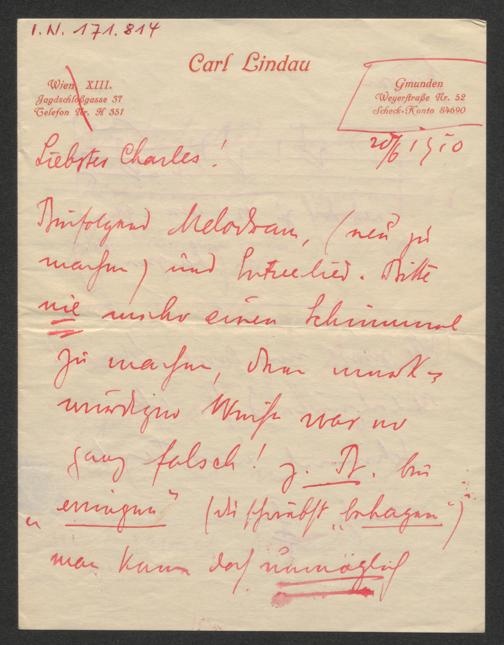 I.N. 171.814
Carl Lindau
Wien, XIII.
Jagdschloßgasse 37
Telefon Nr. H 351
Gmunden
Weyerstraße Nr. 52
Scheck-Konto 84690
20/6 1910
Liebster Charles!
Beifolgend Melodram, (neu zu
machen) und Entreelied. Bitte
nie mehr einen Schimmel
zu machen, denn merk-
würdiger Weise war er
ganz falsch! z. B. bei
"erringen" (du schreibst "behagen")
man kann doch unmöglich